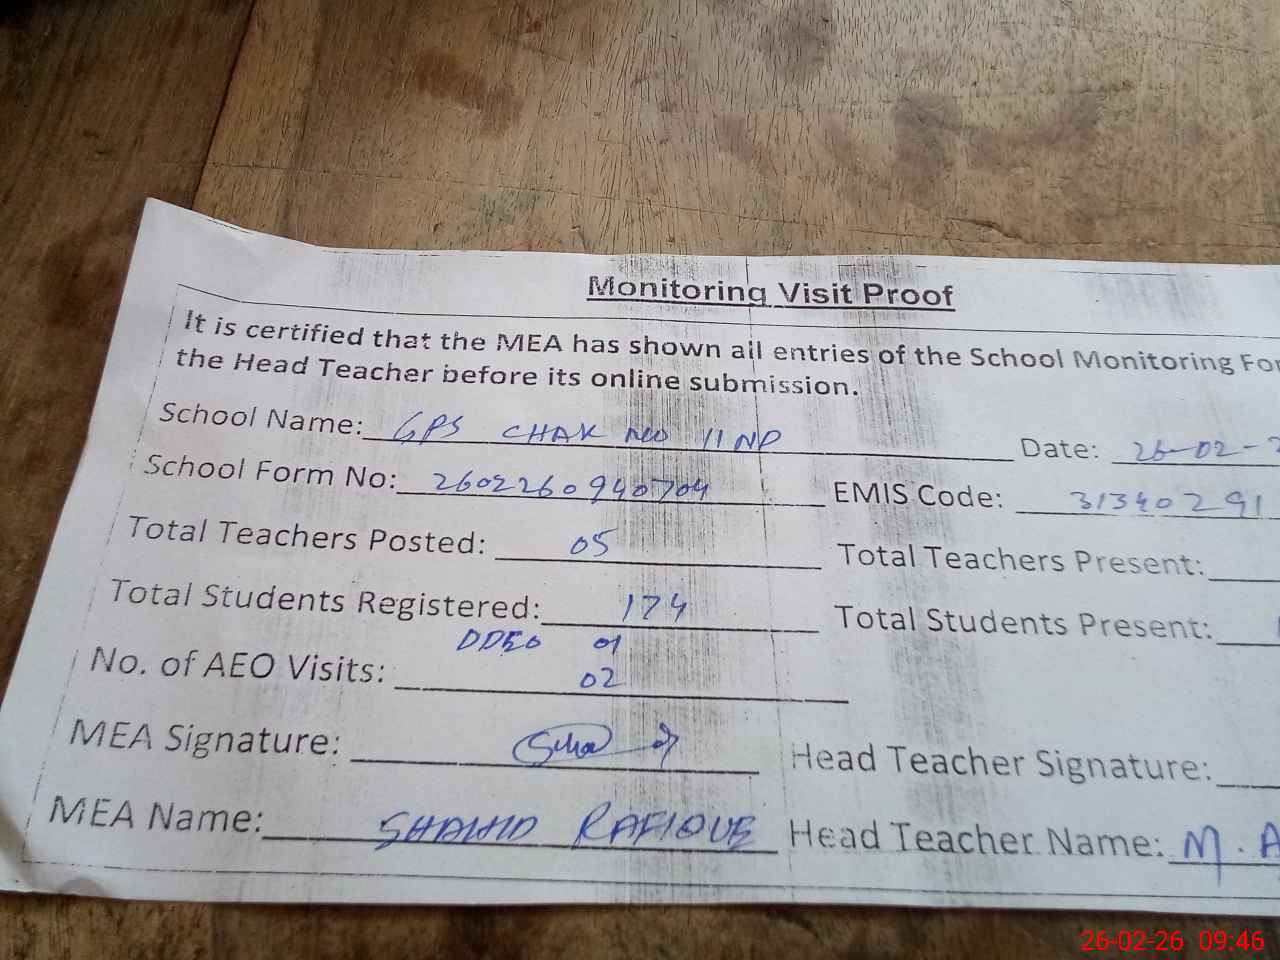 Monitoring Visit Proof
It is certified that the MEA has shown all entries of the School Monitoring For
the Head Teacher before its online submission.
School Name: GPS CHAK NO 11 NP Date: 26-02-2
School Form No: 2602260940704 EMIS Code: 31340291
Total Teachers Posted: 05 Total Teachers Present:
Total Students Registered: 174 Total Students Present:
DDEO 01
No. of AEO Visits: 02
MEA Signature: Head Teacher Signature:
MEA Name: SHAHID RAFIQUE Head Teacher Name: M. A
26-02-26 09:46